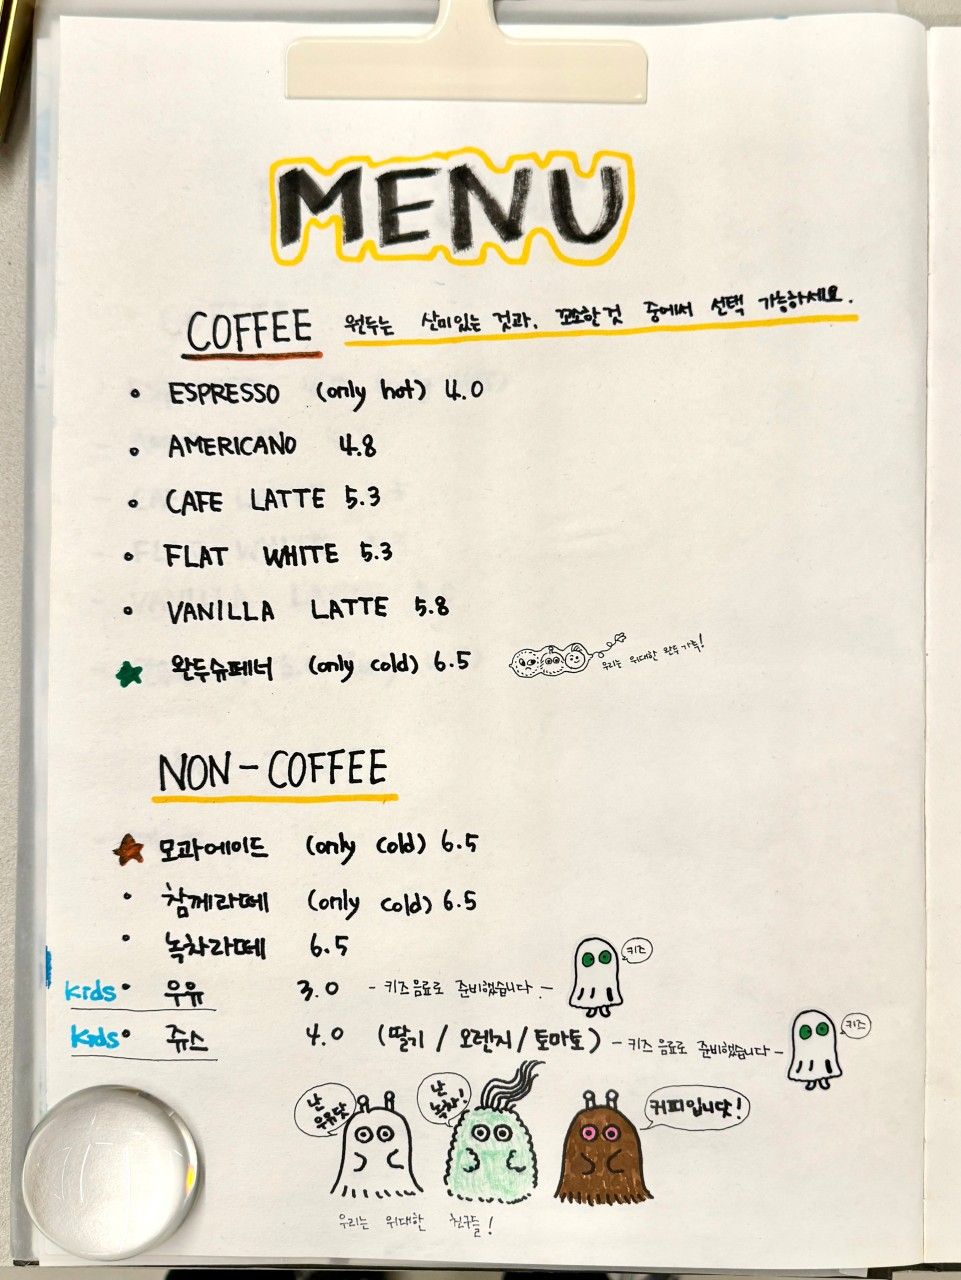 MENU
COFFEE 원두는 산미있는 것과, 꼬소한것 중에서 선택 가능하세요.
• ESPRESSO (only hot) 4.0
• AMERICANO 4.8
• CAFE LATTE 5.3
• FLAT WHITE 5.3
• VANILLA LATTE 5.8
★ 완두슈페너 (only cold) 6.5 우리는 위대한 완두가족!
NON-COFFEE
★ 모과에이드 (only cold) 6.5
• 참께라떼 (only cold) 6.5
• 녹차라떼 6.5
키즈
kids • 우유 3.0 - 키즈음료로 준비했습니다. -
키즈
kids • 쥬스 4.0 (딸기 / 오렌지 / 토마토) - 키즈음료로 준비했습니다 -
난 우유닷
난 녹차!
커피입니닷!
우리는 위대한 친구들!